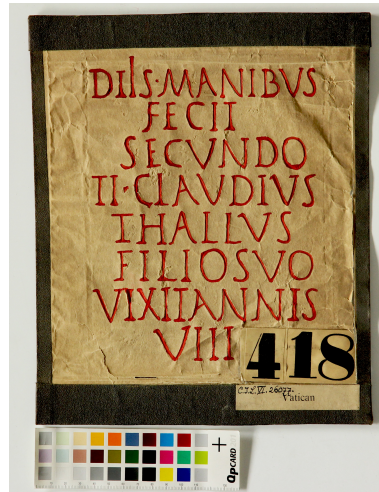 DIIS·MANIBVS
FECIT
SECVNDO
TI·CLAVDIVS
THALLVS
FILIOSVO
VIXITANNIS
VIII
418
C.I.L. VI. 26077.
Vatican
QPCARD